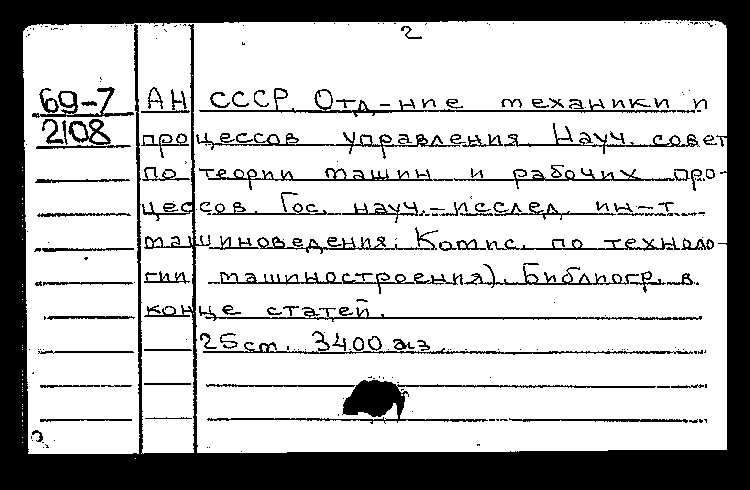 2
69-7 АН СССР. Отд-ние механики и
2108 процессов управления. Науч. совет
по теории машин и рабочих про-
цессов. Гос. науч.-исслед. ин-т
машиноведения. Комис. по техноло-
гии машиностроения). Библиогр. в
конце статей.
25 см. 3400 экз.